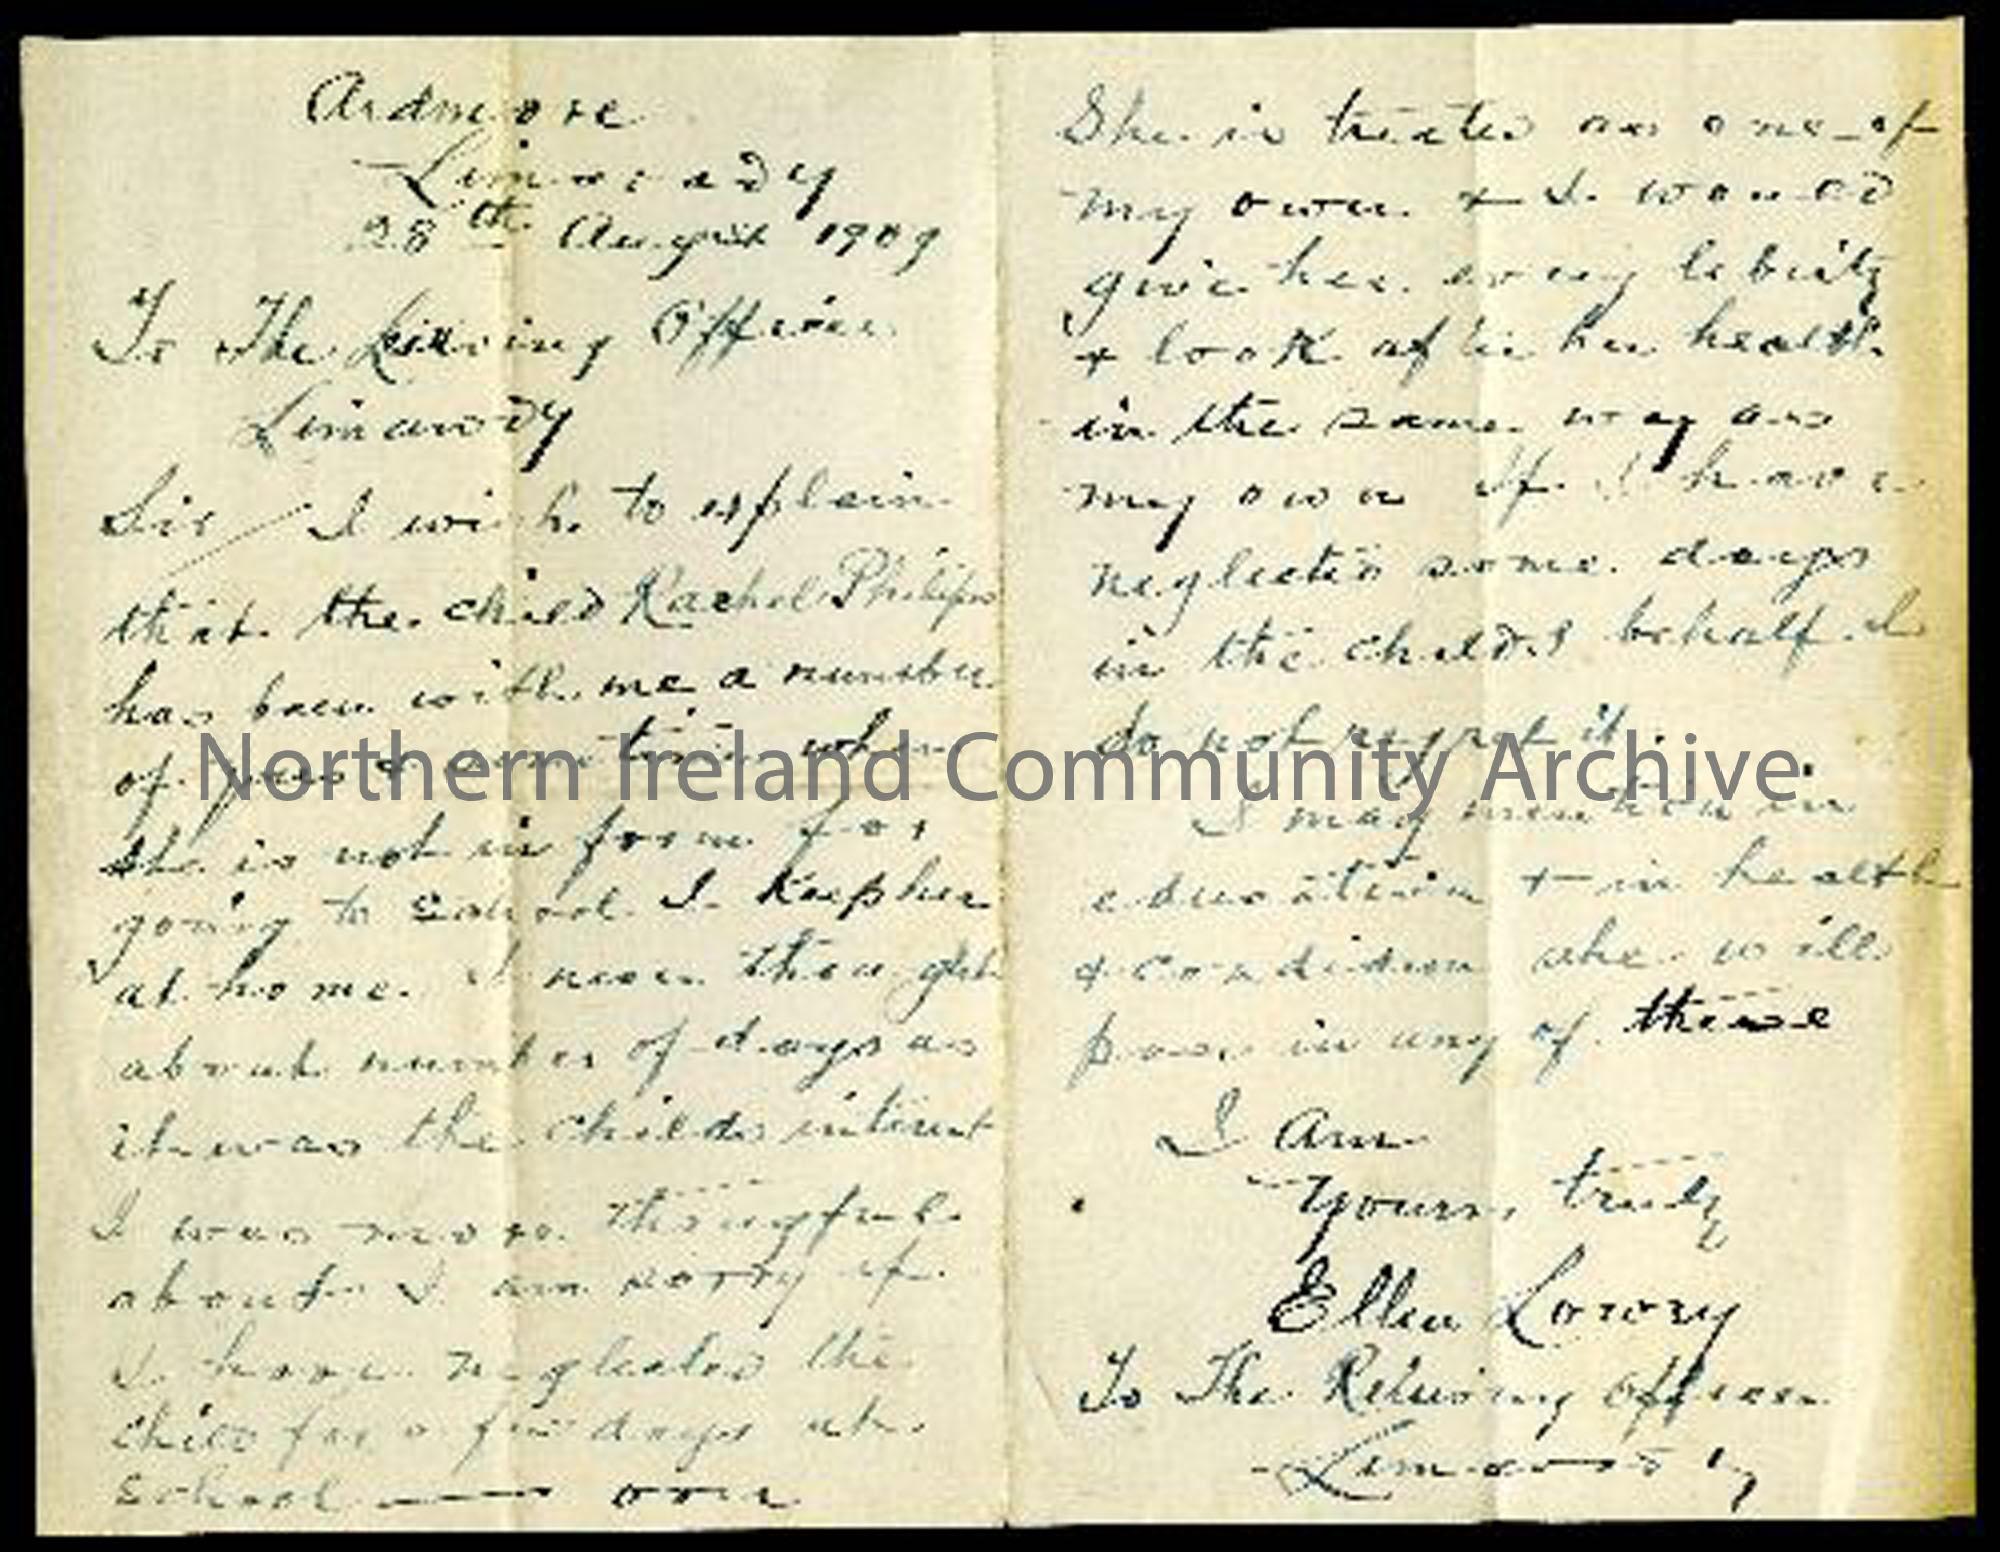 Ardmore
Limavady
28th August 1909
To The Releiving Officer
Limavady
Sir / I wish to explain
that the child Rachel Philips
has been with me a number
of years & any time when
she is not in form for
going to School I Keep her
at home. I never thought
about number of days as
it was the childs interest
I was more
about I am sorry if
I have neglected the
child for a few days at
School — over
She is treated as one of
my own & I would
give her every
& look after her health
in the same way as
my own If I have
neglected some days
in the childs behalf I
do not regret it.
I may mention in
education & in health
& condition she will
pass in any of these
I Am
Yours truly
Ellen Lowry
To The Releiving Officer
Limavady
Northern Ireland Community Archive